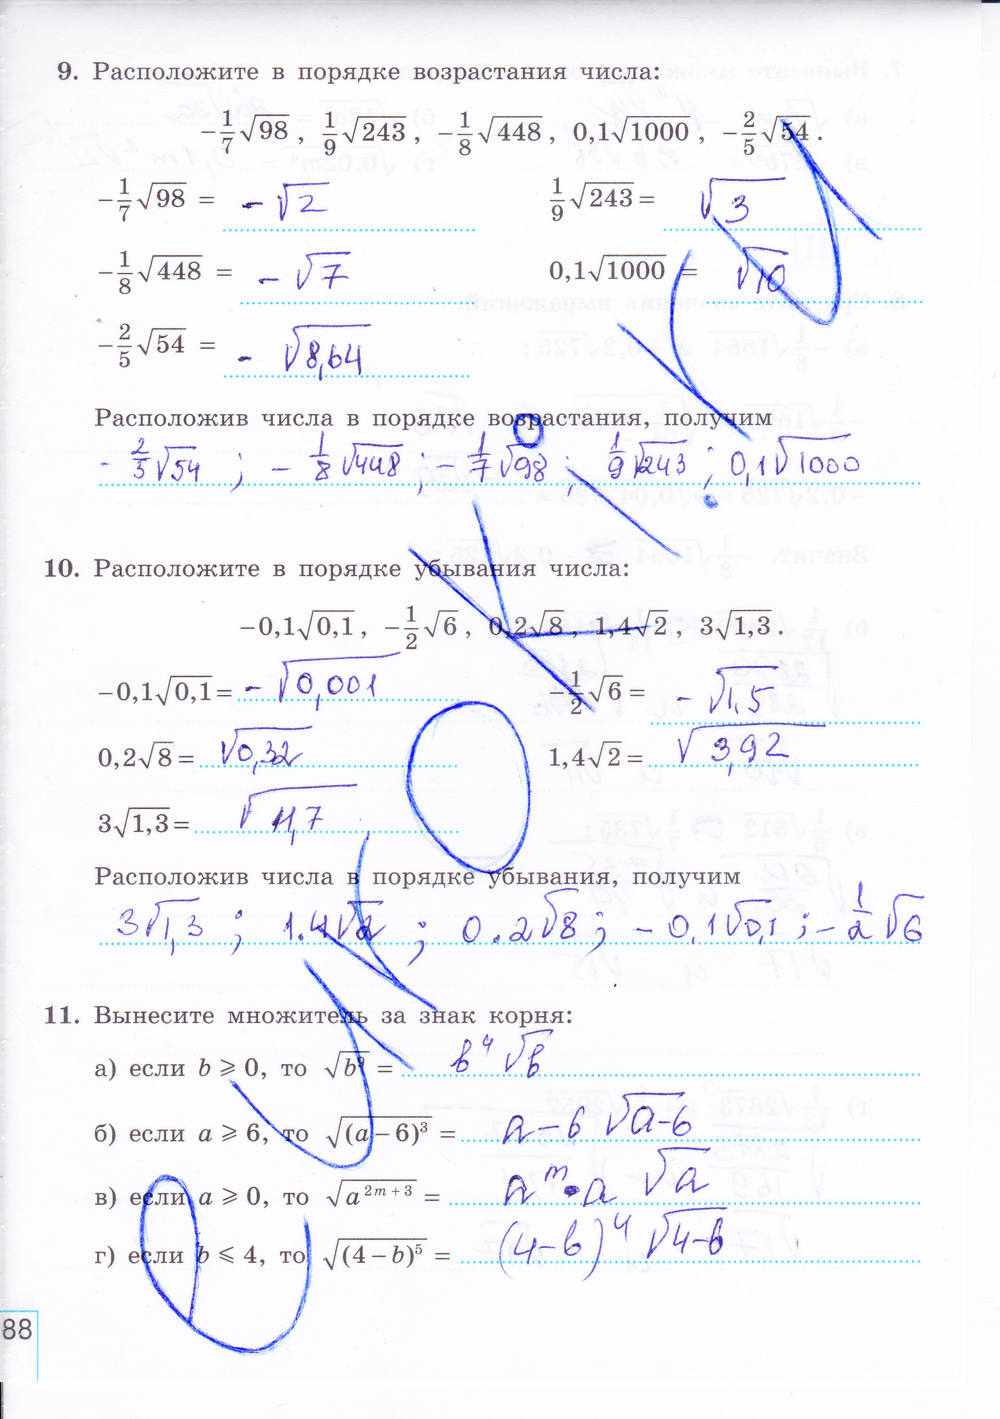 9. Расположите в порядке возрастания числа:
−1/7√98, 1/9√243, −1/8√448, 0,1√1000, −2/5√54.
−1/7√98 = −√2 1/9√243 = √3
−1/8√448 = −√7 0,1√1000 = √10
−2/5√54 = −√8,64
Расположив числа в порядке возрастания, получим
−2/5√54; −1/8√448; −1/7√98; 1/9√243; 0,1√1000
10. Расположите в порядке убывания числа:
−0,1√0,1, −1/2√6, 0,2√8, 1,4√2, 3√1,3.
−0,1√0,1 = −√0,001 −1/2√6 = −√1,5
0,2√8 = √0,32 1,4√2 = √3,92
3√1,3 = √11,7
Расположив числа в порядке убывания, получим
3√1,3; 1.4√2; 0.2√8; −0,1√0,1; −1/2√6
11. Вынесите множитель за знак корня:
а) если b ⩾ 0, то √b⁹ = b⁴√b
б) если a ⩾ 6, то √(a − 6)³ = a−6√a−6
в) если a ⩾ 0, то √a²ᵐ⁺³ = aᵐ·a√a
г) если b ⩽ 4, то √(4 − b)⁵ = (4−b)⁴√4−b
88